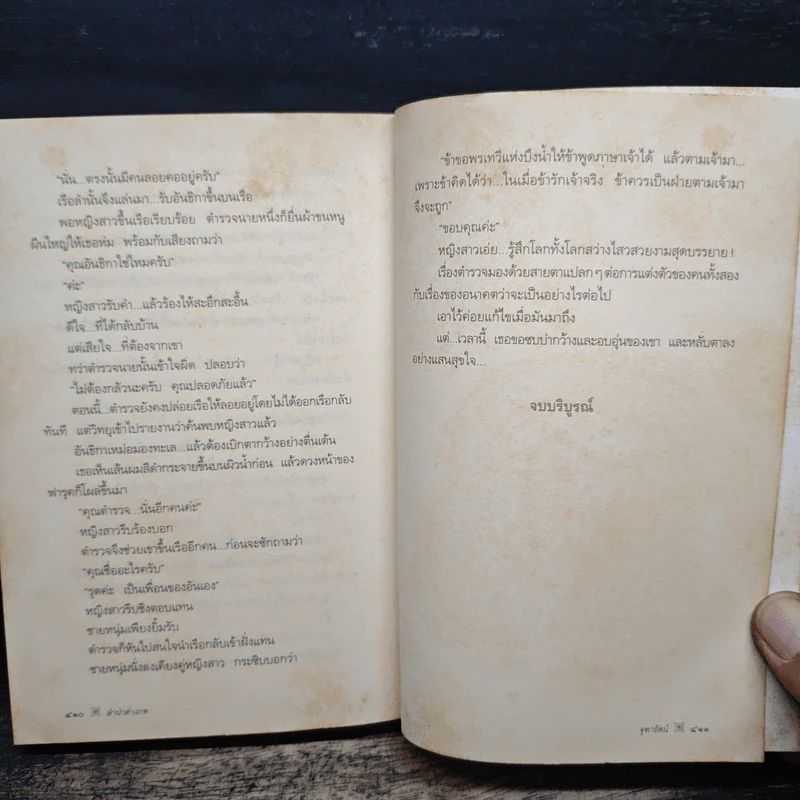 "นั่น...ตรงนั้นมีคนลอยคออยู่ครับ"
เรือลำนั้นจึงแล่นมา...รับอันธิกาขึ้นบนเรือ
พอหญิงสาวขึ้นเรือเรียบร้อย ตำรวจนายหนึ่งก็ยื่นผ้าขนหนู
ผืนใหญ่ให้เธอห่ม พร้อมกับเสียงถามว่า
"คุณอันธิกาใช่ไหมครับ"
"ค่ะ"
หญิงสาวรับคำ...แล้วร้องไห้สะอึกสะอื้น
ดีใจ...ที่ได้กลับบ้าน
แต่เสียใจ...ที่ต้องจากเขา
ทว่าตำรวจนายนั้นเข้าใจผิด ปลอบว่า
"ไม่ต้องกลัวนะครับ คุณปลอดภัยแล้ว"
ตอนนี้...ตำรวจยังคงปล่อยเรือให้ลอยอยู่โดยไม่ได้ออกเรือกลับ
ทันที แต่วิทยุเข้าไปรายงานว่าค้นพบหญิงสาวแล้ว
อันธิกาเหม่อมองทะเล...แล้วต้องเบิกตากว้างอย่างตื่นเต้น
เธอเห็นเส้นผมสีดำกระจายขึ้นบนผิวน้ำก่อน แล้วดวงหน้าของ
ฟารุคก็โผล่ขึ้นมา
"คุณตำรวจ...นั่นอีกคนค่ะ"
หญิงสาวรีบร้องบอก
ตำรวจจึงช่วยเขาขึ้นเรืออีกคน...ก่อนจะซักถามว่า
"คุณชื่ออะไรครับ"
"รุคค่ะ เป็นเพื่อนของอันเอง"
หญิงสาวรีบชิงตอบแทน
ชายหนุ่มเพียงยิ้มรับ
ตำรวจก็หันไปสนใจนำเรือกลับเข้าฝั่งแทน
ชายหนุ่มนั่งลงเคียงคู่หญิงสาว กระซิบบอกว่า
๔๑๐
"ข้าขอพรเทวีแห่งบึงน้ำให้ข้าพูดภาษาเจ้าได้ แล้วตามเจ้ามา...
เพราะข้าคิดได้ว่า...ในเมื่อข้ารักเจ้าจริง ข้าควรเป็นฝ่ายตามเจ้ามา
จึงจะถูก"
"ขอบคุณค่ะ"
หญิงสาวเอ่ย...รู้สึกโลกทั้งโลกสว่างไสวสวยงามสุดบรรยาย!
เรื่องตำรวจมองด้วยสายตาแปลกๆต่อการแต่งตัวของคนทั้งสอง
กับเรื่องของอนาคตว่าจะเป็นอย่างไรต่อไป
เอาไว้ค่อยแก้ไขเมื่อมันมาถึง
แต่...เวลานี้ เธอขอซบบ่ากว้างและอบอุ่นของเขา และหลับตาลง
อย่างแสนสุขใจ...
จบบริบูรณ์
จุฑารัตน์ ๔๑๑